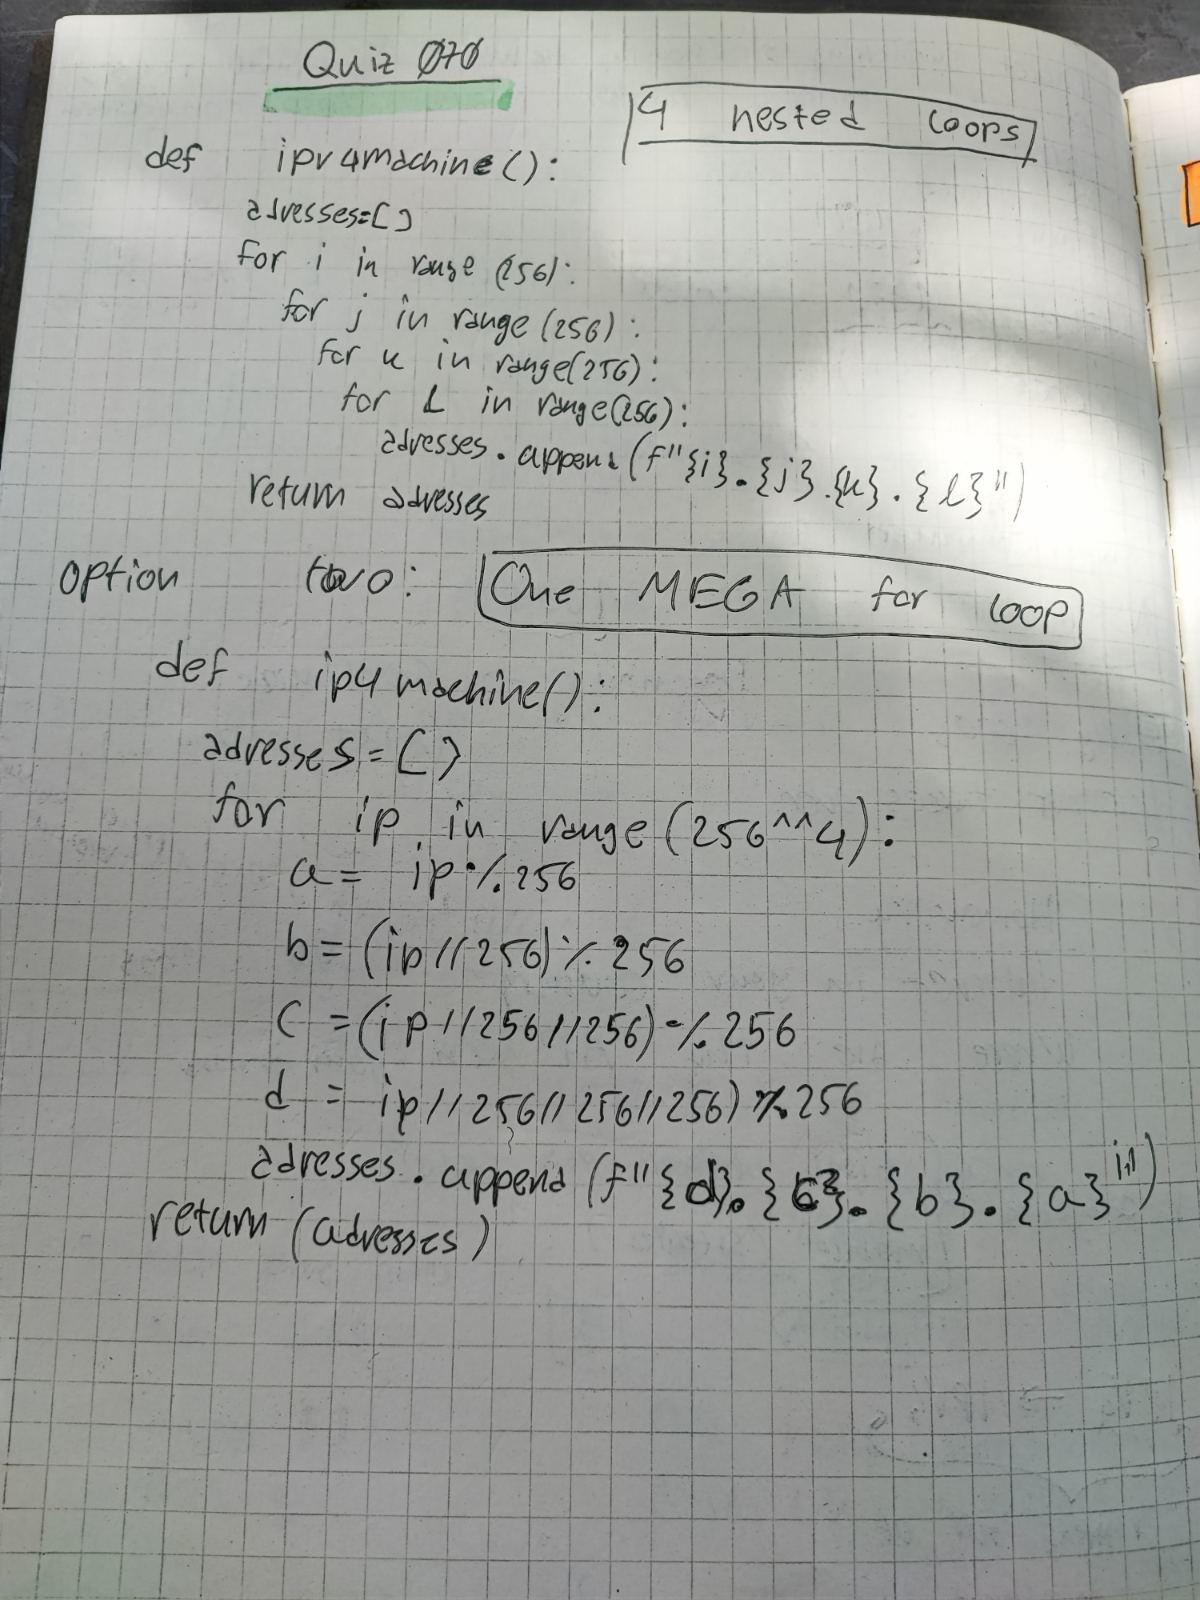 Quiz 070
4 nested loops
def ipv4machine():
adresses=[]
for i in range (256):
for j in range (256):
for k in range(256):
for l in range(256):
adresses.append(f"{i}.{j}.{k}.{l}")
return adresses
option two: One MEGA for loop
def ip4machine():
adresses=[]
for ip in range(256^^4):
a= ip%256
b=(ip//256)%256
c=(ip//256//256)%256
d = ip//256//256//256)%256
adresses.append(f"{d}.{c}.{b}.{a}")
return (adresses)